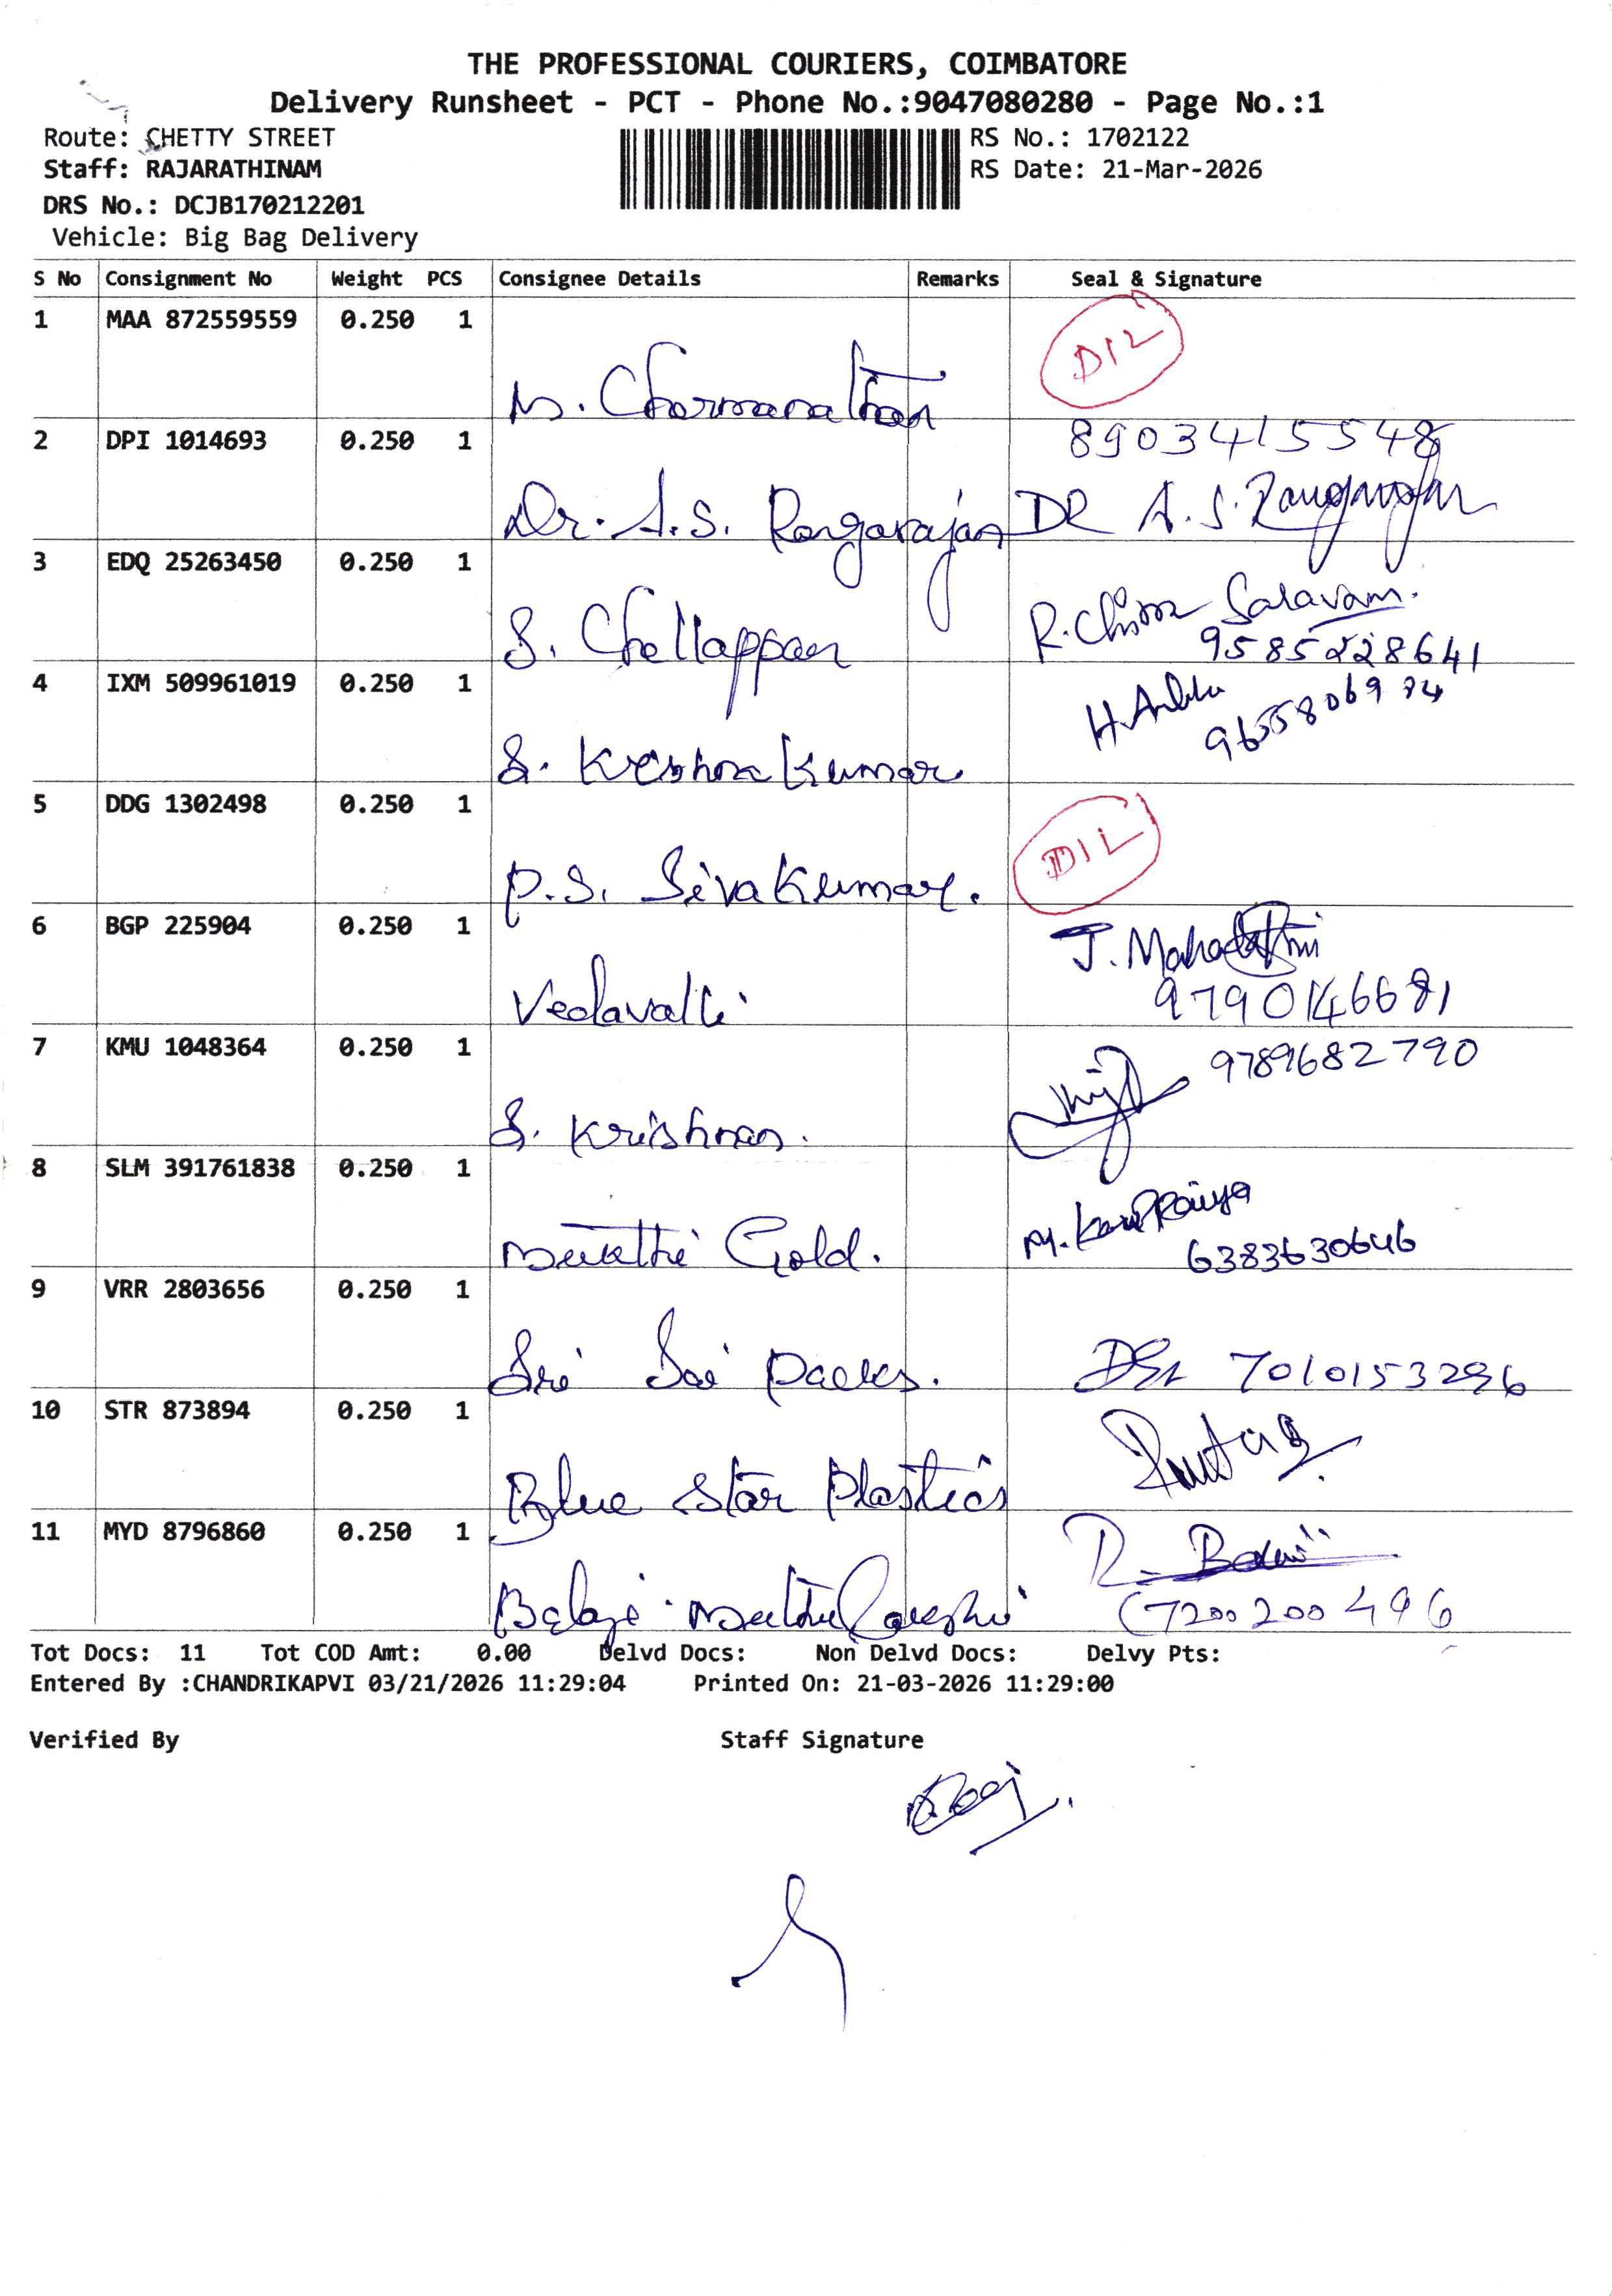 THE PROFESSIONAL COURIERS, COIMBATORE
Delivery Runsheet - PCT - Phone No.:9047080280 - Page No.:1
Route: CHETTY STREET
RS No.: 1702122
Staff: RAJARATHINAM
RS Date: 21-Mar-2026
DRS No.: DCJB170212201
Vehicle: Big Bag Delivery
S No Consignment No Weight PCS Consignee Details Remarks Seal & Signature
1 MAA 872559559 0.250 1
2 DPI 1014693 0.250 1 Dr. A.S. Rangarajan DR A.S. Rangarajan
8903415548
3 EDQ 25263450 0.250 1 S. Chellappan
9585228641
4 IXM 509961019 0.250 1 S. Kreshna Kumar
5 DDG 1302498 0.250 1 P.S. Sivakumar.
6 BGP 225904 0.250 1 Vedavalli
7 KMU 1048364 0.250 1 S. Krishnan. 9789682790
8 SLM 391761838 0.250 1 Muthu Gold.
6383630646
9 VRR 2803656 0.250 1 Sri Sai Packs. 7010153296
10 STR 873894 0.250 1 Blue Star Plastics
11 MYD 8796860 0.250 1 Balaji
7200200496
Tot Docs: 11 Tot COD Amt: 0.00 Delvd Docs: Non Delvd Docs: Delvy Pts:
Entered By :CHANDRIKAPVI 03/21/2026 11:29:04 Printed On: 21-03-2026 11:29:00
Verified By Staff Signature